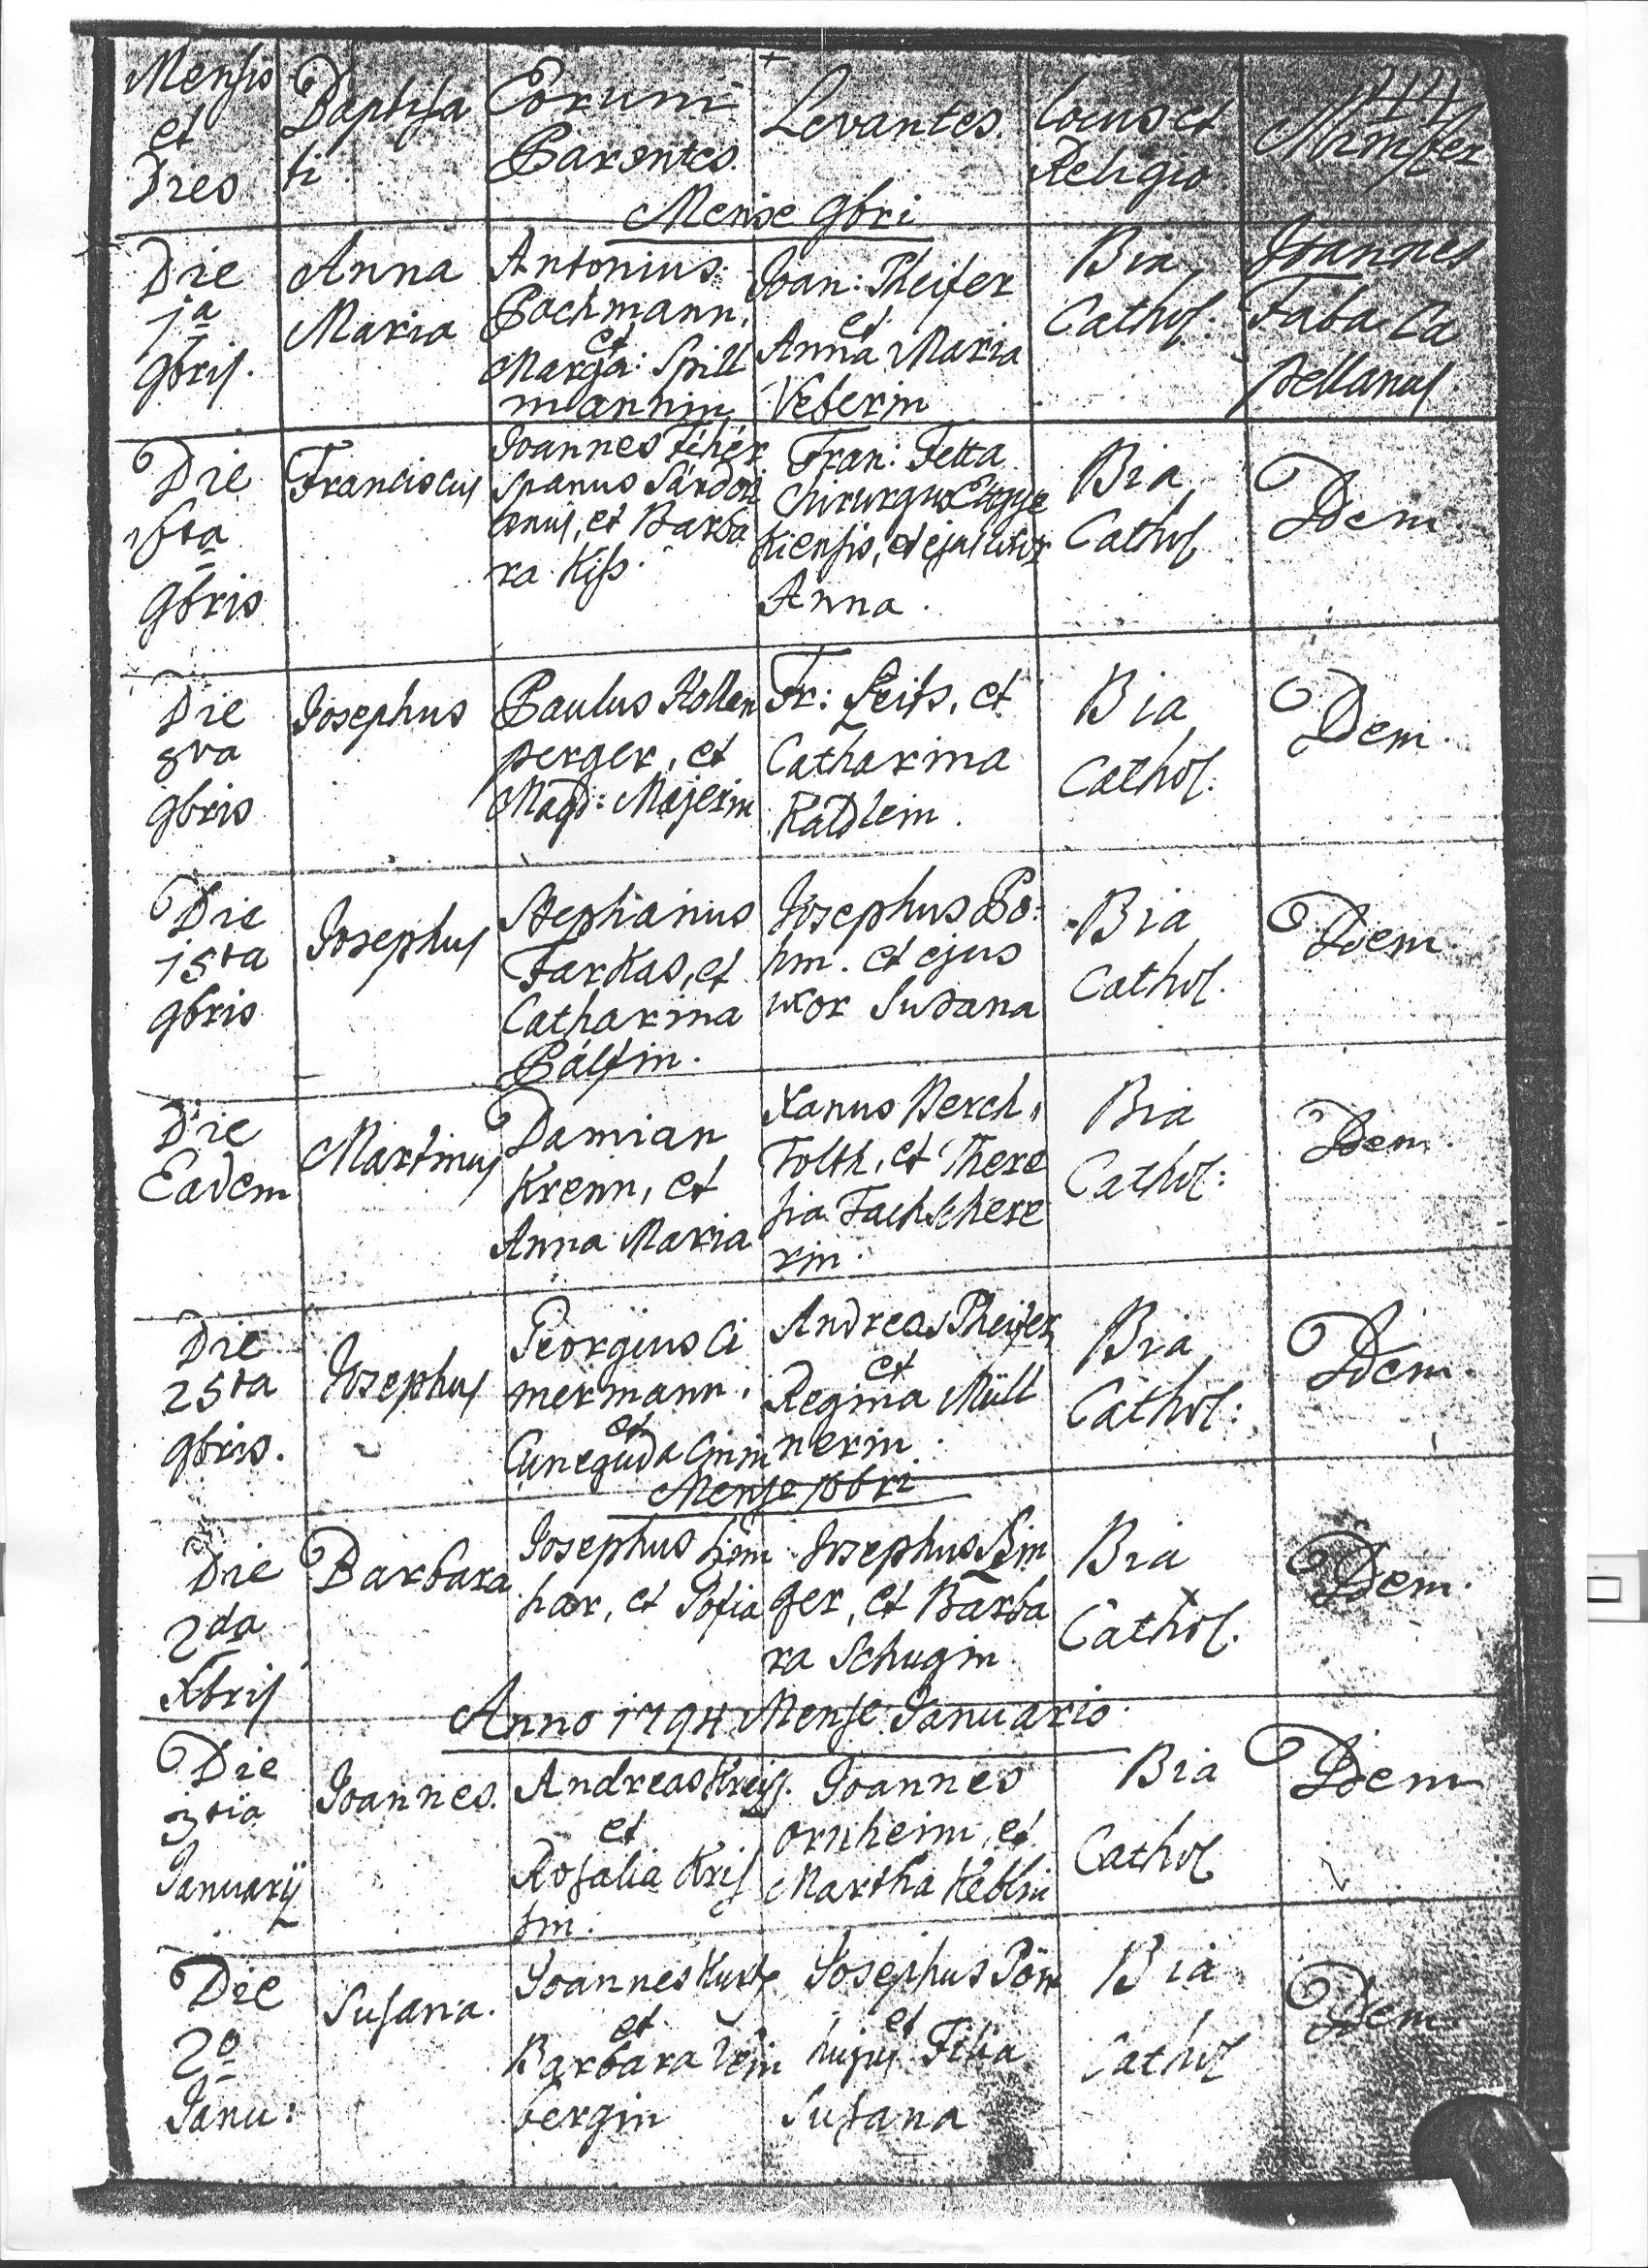 Mensis
et
Dies
Baptisa
ti
Eorum
Parentes.
Levantes.
Locus et
Religio
Minister
Mense 9bri
Die
1a
9bris.
Anna
Maria
Antonius
Pachmann,
et
Marga: Spill
mannin
Joan: Pheifer
et
Anna Maria
Veberin
Bia
Cathol:
Joannes
Faba Ca
pellanus
Die
9bris
Franciscus
Joannes Fehér
Spanus Sardori
anus, et Barba
ra Kiss.
Fran: Fetta
Chirurgus
kiensis, et ejus uxor
Anna.
Bia
Cathol
Idem.
Die
8va
9bris
Josephus
Paulus Kollen
perger, et
Magd: Majerin
Fr: Zeits, et
Catharina
Raidlein.
Bia
Cathol:
Idem.
Die
15ta
9bris
Josephus
Stephanus
Farkas, et
Catharina
Pálfin.
Josephus Bö:
hm. et ejus
uxor Susana
Bia
Cathol.
Idem.
Die
Eadem
Martinus
Damian
Krenn, et
Anna Maria
Xanus Berch,
Tolth, et There
sia Fachschere
rin.
Bia
Cathol:
Idem.
Die
25ta
9bris.
Josephus
Georgius Ci
mermann,
et
Cuneguda
Andreas Pheifer
et
Regina Müll
nerin.
Bia
Cathol:
Idem.
Mense Xbri
Die
2da
Xbris
Barbara
Josephus
har, et Sofia
Josephus Sin
ger, et Barba
ra Schugin
Bia
Cathol.
Idem.
Anno 1794 Mense Januario.
Die
3tia
Januarij
Joannes.
Andreas Kreis.
et
Rosalia Kris
tin.
Joannes
ornheim, et
Martha Keblin
Bia
Cathol
Idem
Die
2o
Janu:
Susana.
Joannes Kurtz
et
Barbara Vein
bergin
Josephus
et
hujus Filia
Susana
Bia
Cathol
Idem.